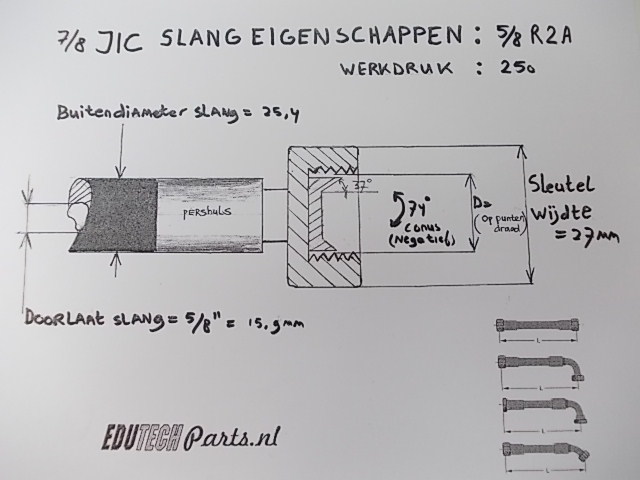 7/8 JIC SLANG EIGENSCHAPPEN : 5/8 R2A
WERKDRUK : 250
Buitendiameter SLANG = 25,4
37°
PERSHULS
74°
conus
(Negatief)
D2
(op punten
draad)
Sleutel
Wijdte
= 27mm
DOORLAAT SLANG = 5/8" = 15.9mm
L
L
L
L
EDUTECH Parts.nl